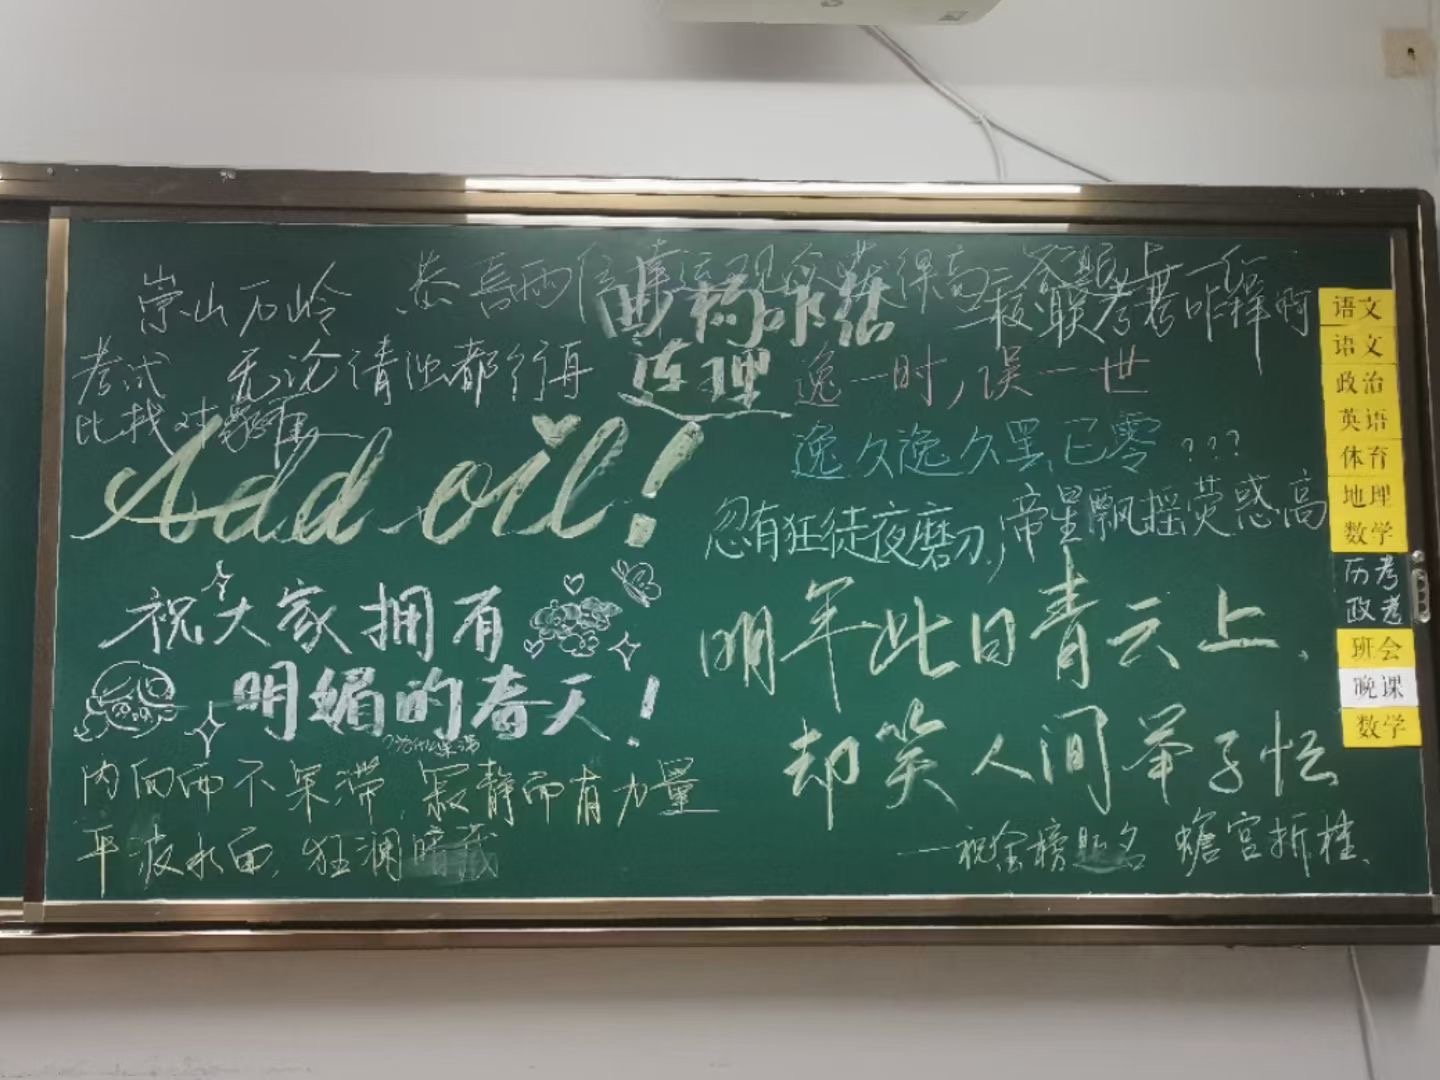 崇山万岭
恭喜两
得高
考试
比找对
无论清浊都行再
连理
联考考咋样啊
逸一时,误一世
逸久逸久罢已零???
忍有狂徒夜磨刀,帝星飘摇荧惑高
Add oil!
祝大家拥有
明媚的春天!
内向而不呆滞,寂静而有力量
平波水面,狂澜暗
明年此日青云上、
却笑人间举子忙
——祝金榜题名 蟾宫折桂、
语文
语文
政治
英语
体育
地理
数学
历考
政考
班会
晚课
数学